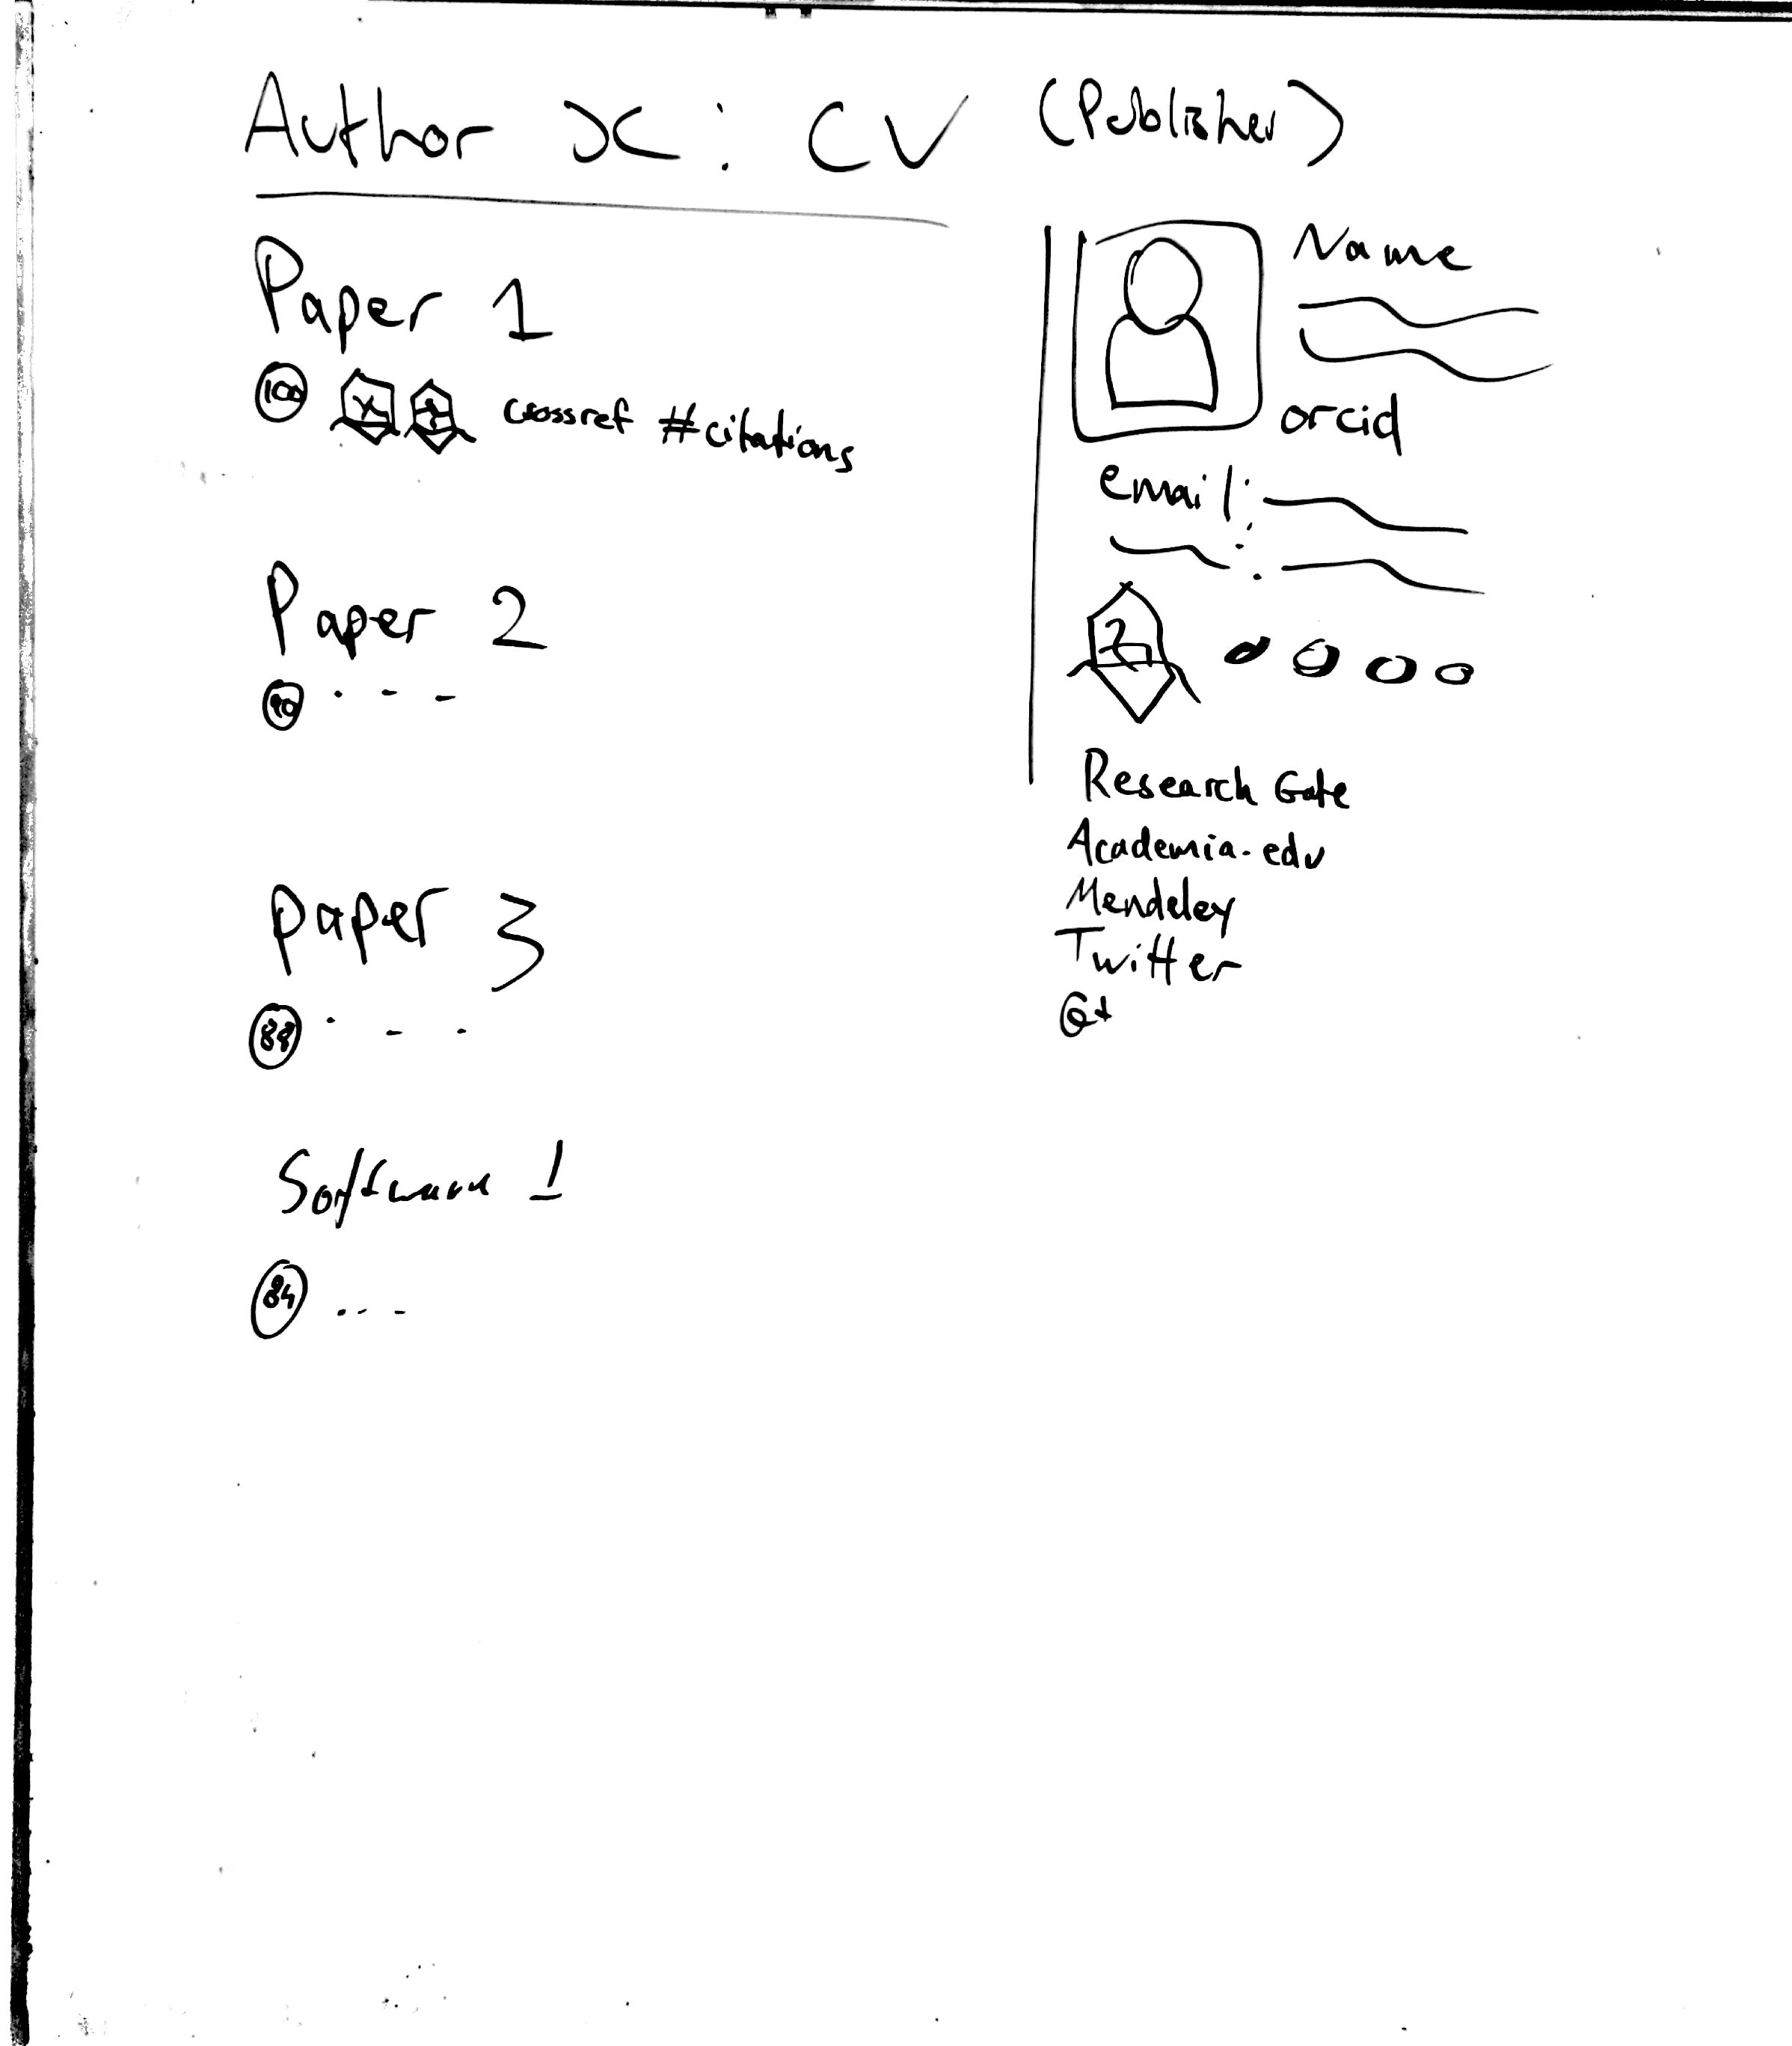 Author X: CV (Publisher)
Paper 1
100 crossref #citations
Paper 2
90 . - -
paper 3
89 . - .
Software 1
84 ...
Name
orcid
email:
Research Gate
Academia.edu
Mendeley
Twitter
G+